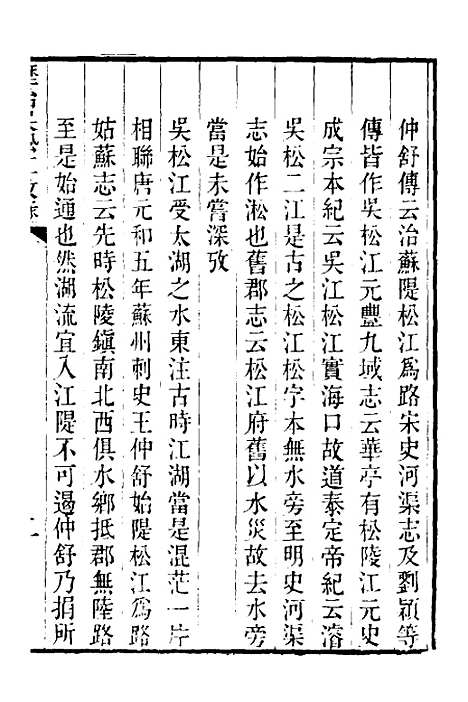 仲舒傳云治蘇隄松江爲路宋史河渠志及劉穎等
傳皆作吳松江元豐九域志云華亭有松陵江元史
成宗本紀云吳江松江實海口故道泰定帝紀云濬
吳松二江是古之松江松字本無水旁至明史河渠
志始作淞也舊郡志云松江府舊以水災故去水旁
當是未嘗深攷
吳松江受太湖之水東注古時江湖當是混茫一片
相聯唐元和五年蘇州刺史王仲舒始隄松江爲路
姑蘇志云先時松陵鎭南北西俱水鄉抵郡無陸路
至是始通也然湖流宜入江隄不可遏仲舒乃捐所